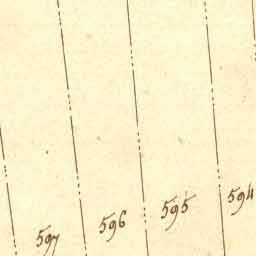 597 596 595 594